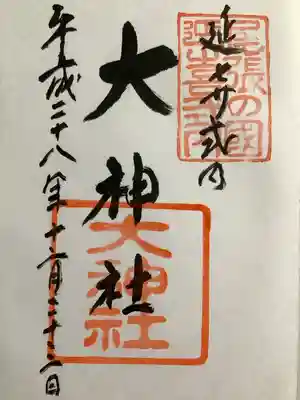 延喜式内
大神社
平成二十八年十二月二十三日
尾張の國
大神社